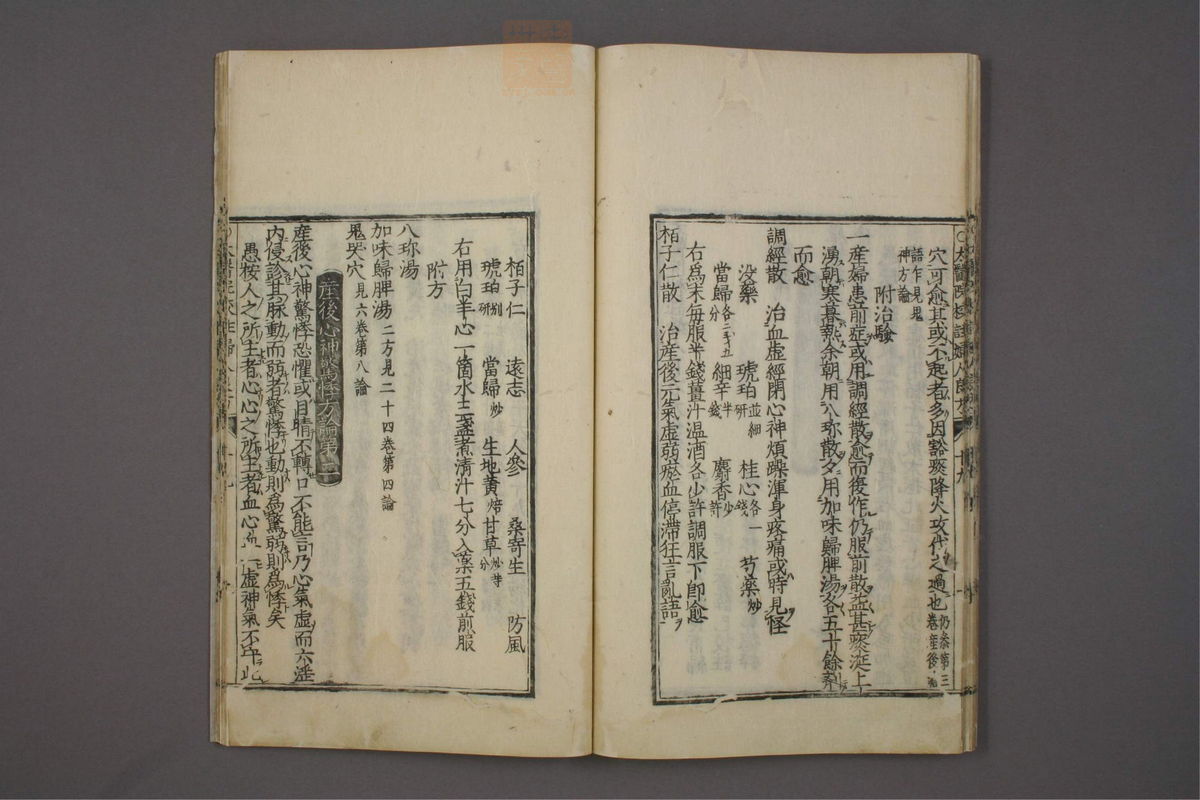 穴可愈其或不起者多因豁痰降火攻伐之過也仍参第三卷産後
語乍見鬼神方論
附治驗
一産婦患前症或用調經散愈而復作仍服前散益甚痰涎上
湧朝寒暮熱余朝用八珎散夕用加味歸脾湯各五十餘劑
而愈
調經散 治血虛經閉心神煩躁渾身疼痛或時見怪
没藥 琥珀並細研 桂心各一錢 芍藥炒
當歸各二 細辛半錢 麝香少許
右爲末毎服半錢薑汁温酒各少許調服下卽愈
栢子仁散 治産後元氣虛弱瘀血停滯狂言亂語
栢子仁 遠志 人參 桑寄生 防風
琥珀別研 當歸炒 生地黄焙 甘草炒等分
右用白羊心一箇水三盞煮清汁七分入藥五錢煎服
附方
八珎湯
加味歸脾湯二方見二十四卷第四論
鬼哭穴見六卷第八論
産後心神驚悸方論第
産後心神驚悸恐懼或目睛不轉口不能言乃心氣虛而六淫
内侵診其脉動而弱者驚悸也動則爲驚弱則爲悸矣
愚按人之所主者心心之所主者血心血一虛神氣不守此